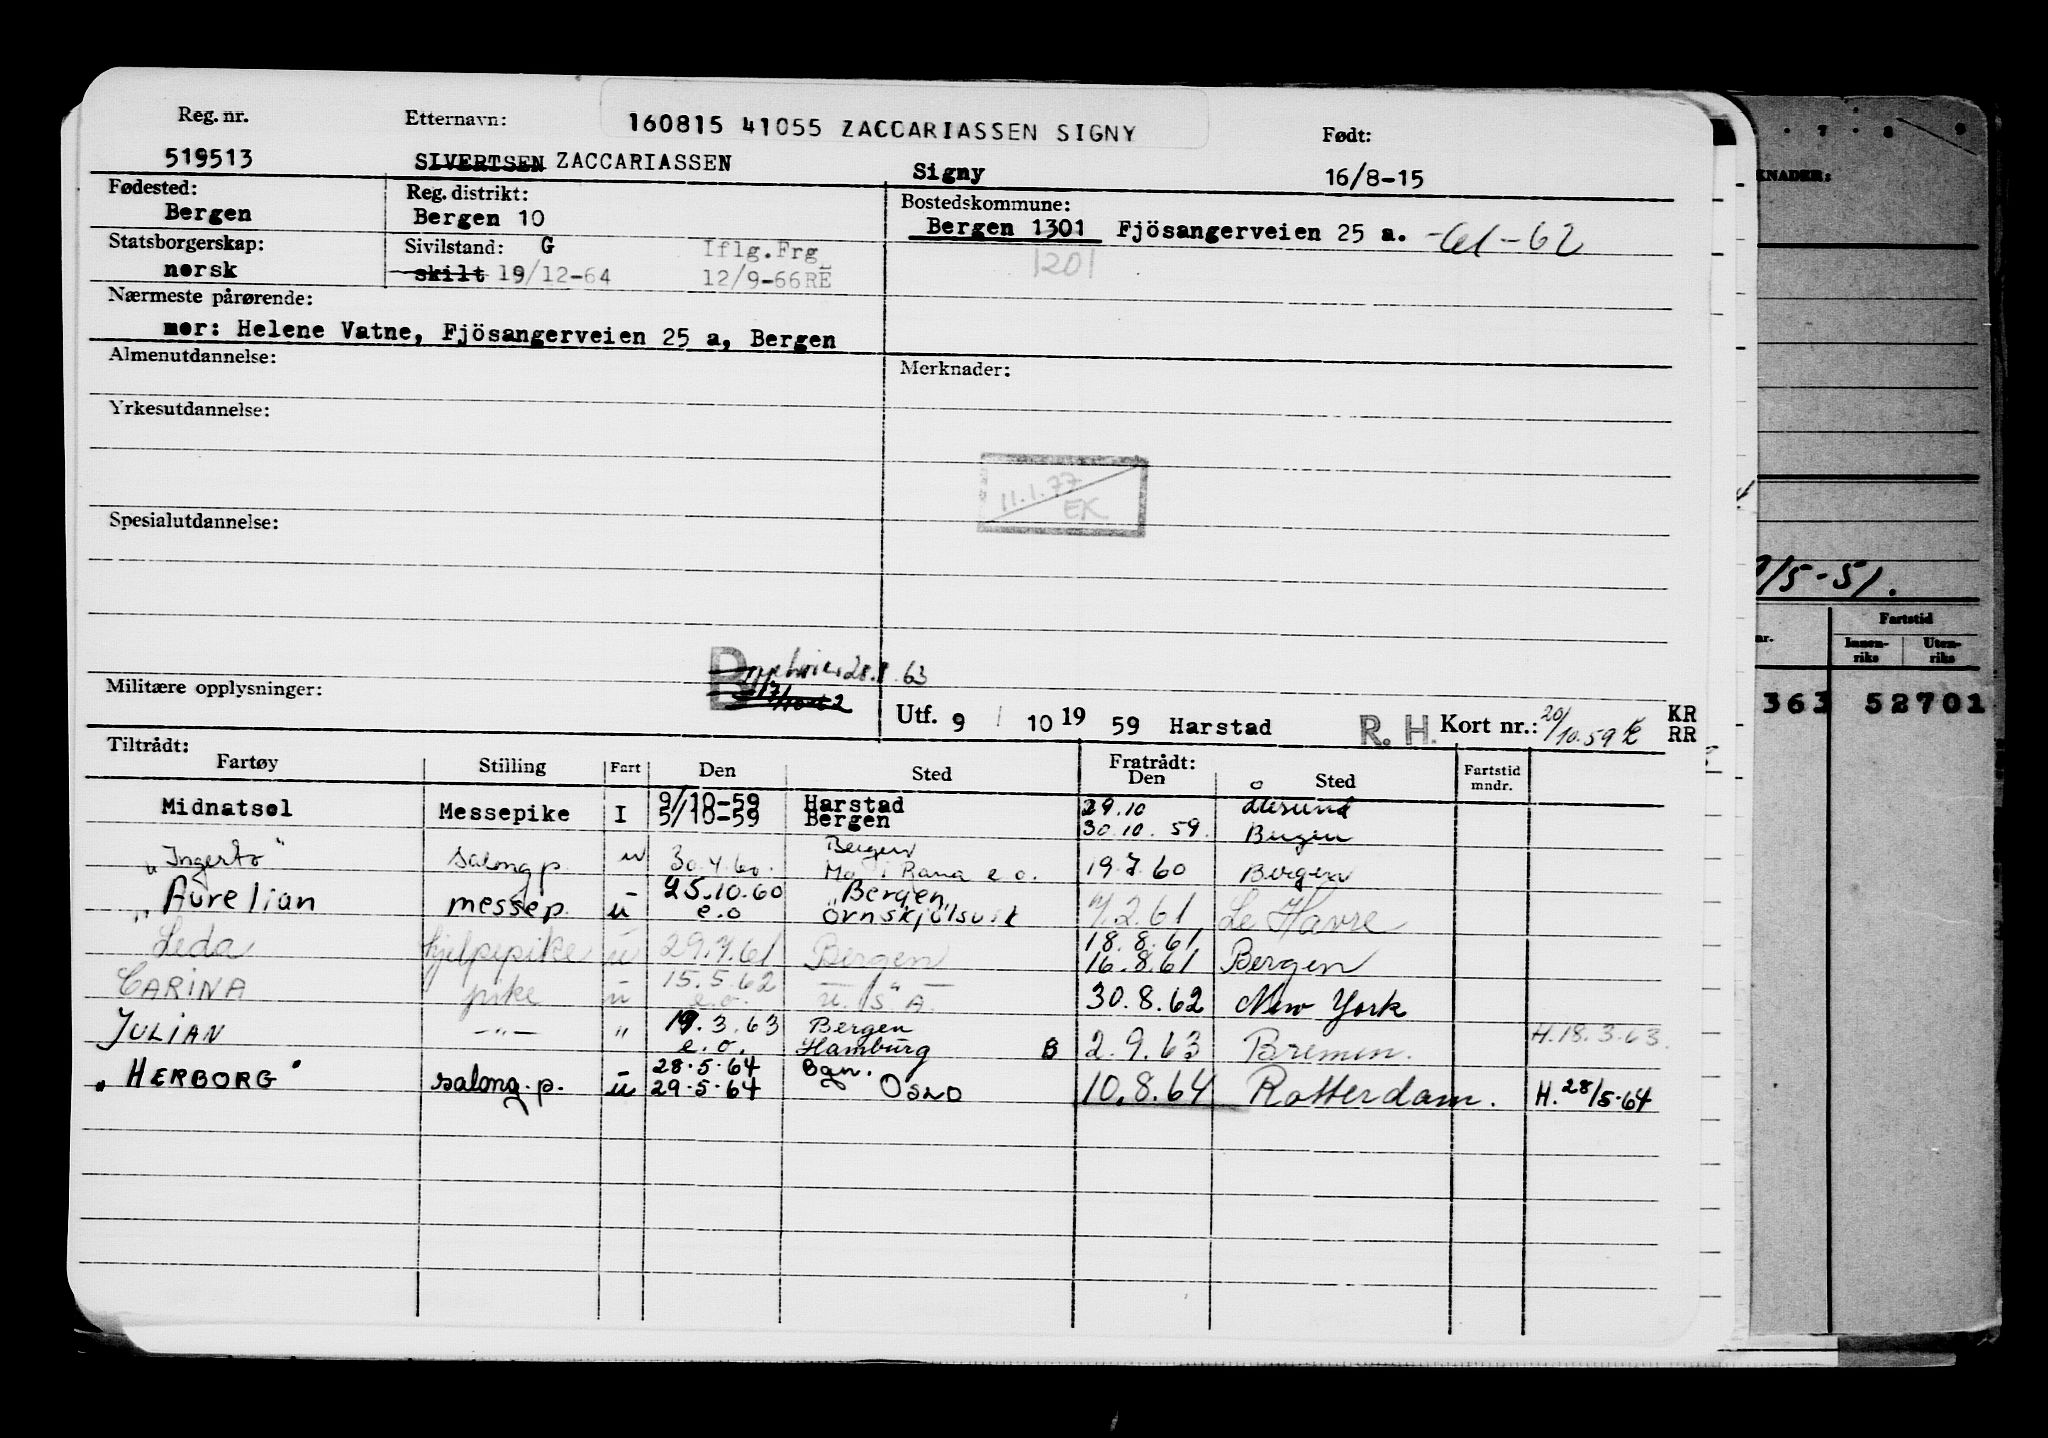 Reg. nr. Etternavn: 160815 41055 ZACCARIASSEN SIGNY Født:
519513 SIVERTSEN ZACCARIASSEN Signy 16/8-15
Fødested: Reg. distrikt: Bostedskommune:
Bergen Bergen 10 Bergen 1301 Fjösangerveien 25 a. -61-62
Statsborgerskap: Sivilstand: G Iflg.Frg 1201
norsk skilt 19/12-64 12/9-66RE
Nærmeste pårørende:
mor: Helene Vatne, Fjösangerveien 25 a, Bergen
Almenutdannelse: Merknader:
Yrkesutdannelse:
11.1.77
EK
Spesialutdannelse:
B 28.8.63
Militære opplysninger:
Utf. 9 / 10 19 59 Harstad R. H. Kort nr.: 20/10.59 KR
RR
Tiltrådt: Fratrådt:
Fartøy Stilling Fart Den Sted Den Sted Fartstid mndr.
Midnatsol Messepike I 9/10-59 Harstad 29.10 Ålesund
5/10-59 Bergen 30.10.59. Bergen
"Ingerto" salongp. u 30.4.60. Bergen
Mo i Rana e.o. 19.7.60 Bergen
"Aurelian messep. u 25.10.60 "Bergen"
e.o Örnskjölsvik 7.2.61 Le Havre
Leda hjelpepike u 29.7.61 Bergen 18.8.61
16.8.61 Bergen
CARINA pike u 15.5.62 — " —
e.o. U.S.A. 30.8.62 New York
JULIAN —"— " 19.3.63 Bergen
e.o. Hamburg B 2.9.63 Bremen. H.18.3.63.
"HERBORG" salong.p. u 28.5.64 Bgn.
29.5.64 Oslo 10.8.64 Rotterdam. H.28/5.64
7 8 9
KNADER:
/5-51.
nr. Fartstid
Innen-riks Uten-riks
363 52701